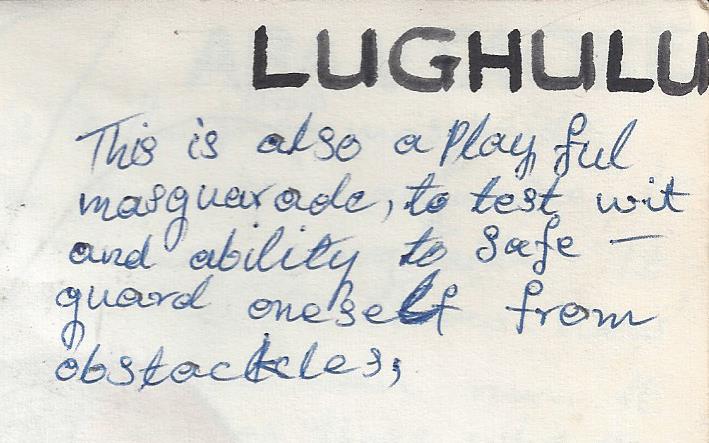 LUGHULU
This is also a Playful
masquarade, to test wit
and ability to safe –
guard oneself from
obstackles,